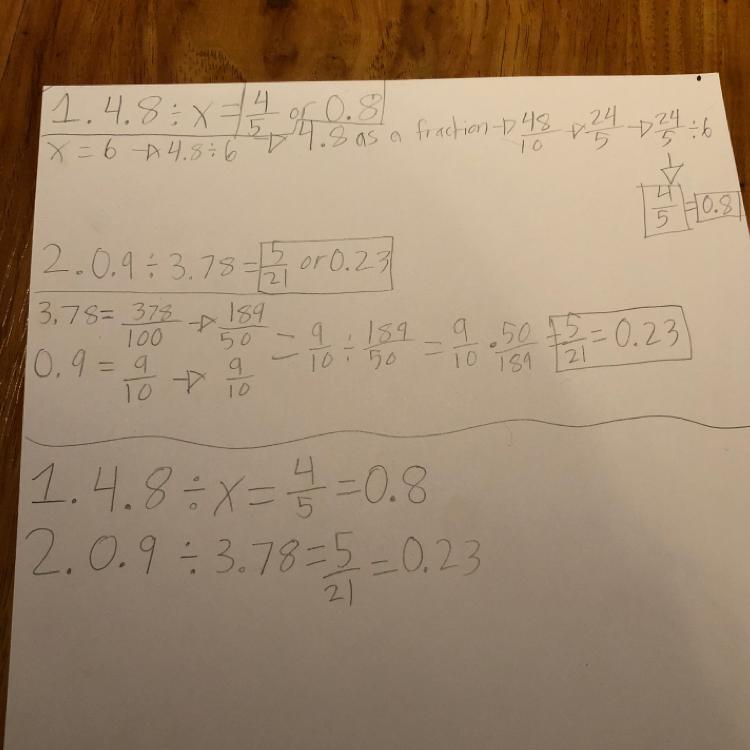 1. 4.8 ÷ x = 4/5 or 0.8
x = 6 → 4.8 ÷ 6 → 4.8 as a fraction → 48/10 → 24/5 → 24/5 ÷ 6
↓
4/5 = 0.8
2. 0.9 ÷ 3.78 = 5/21 or 0.23
3.78 = 378/100 → 189/50
0.9 = 9/10 → 9/10
= 9/10 ÷ 189/50 = 9/10 · 50/189 = 5/21 = 0.23
1. 4.8 ÷ x = 4/5 = 0.8
2. 0.9 ÷ 3.78 = 5/21 = 0.23